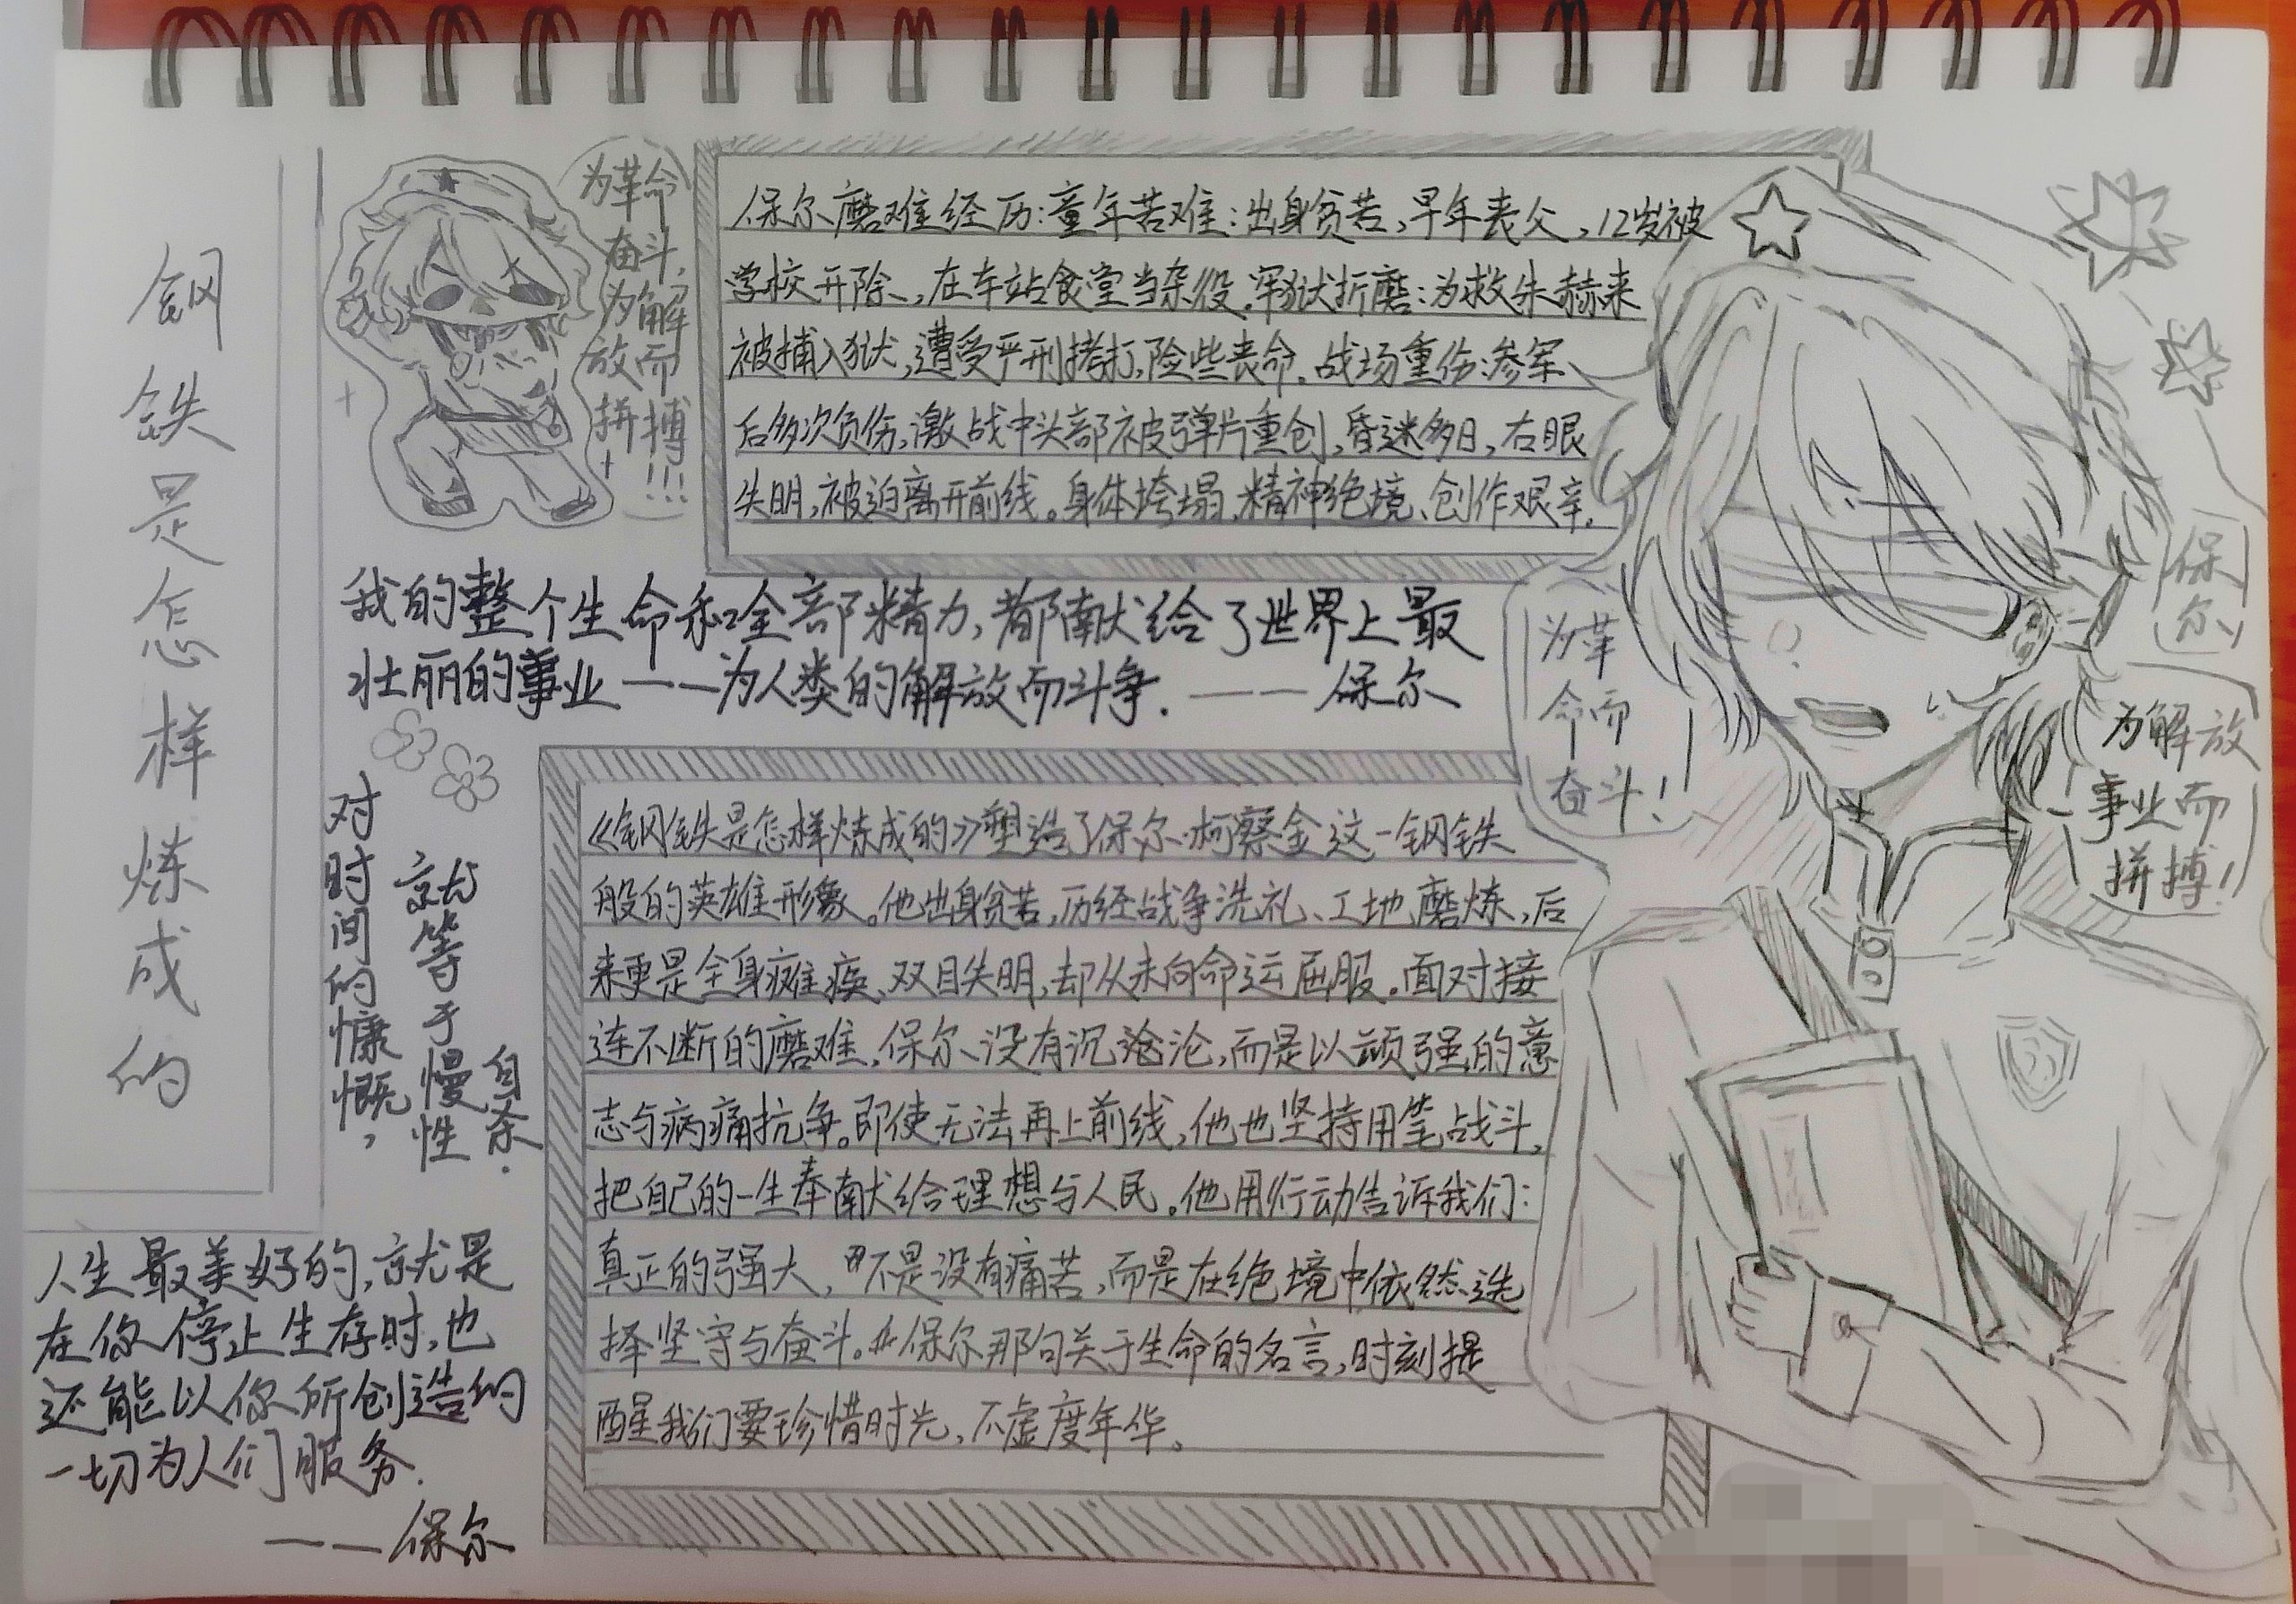 钢铁是怎样炼成的
为革命
奋斗,
为解
放而
拼搏!!!
保尔磨难经历:童年苦难:出身贫苦,早年丧父,12岁被
学校开除,在车站食堂当杂役.牢狱折磨:为救朱赫来
被捕入狱,遭受严刑拷打,险些丧命.战场重伤:参军
后多次负伤,激战中头部被弹片重创,昏迷多日,右眼
失明,被迫离开前线。身体垮塌,精神绝境、创作艰辛.
我的整个生命和全部精力,都献给了世界上最
壮丽的事业——为人类的解放而斗争.——保尔
对时间的慷慨,
就等于慢性
自杀.
人生最美好的,就是
在你停止生存时,也
还能以你所创造的
一切为人们服务.
——保尔
《钢铁是怎样炼成的》塑造了保尔·柯察金这一钢铁
般的英雄形象。他出身贫苦,历经战争洗礼、工地磨炼,后
来更是全身瘫痪、双目失明,却从未向命运屈服.面对接
连不断的磨难,保尔没有沉沦,而是以顽强的意
志与病痛抗争。即使无法再上前线,他也坚持用笔战斗,
把自己的一生奉献给理想与人民。他用行动告诉我们:
真正的强大,不是没有痛苦,而是在绝境中依然选
择坚守与奋斗。保尔那句关于生命的名言,时刻提
醒我们要珍惜时光,不虚度年华。
为革
命而
奋斗!
保
尔
为解放
事业而
拼搏!!